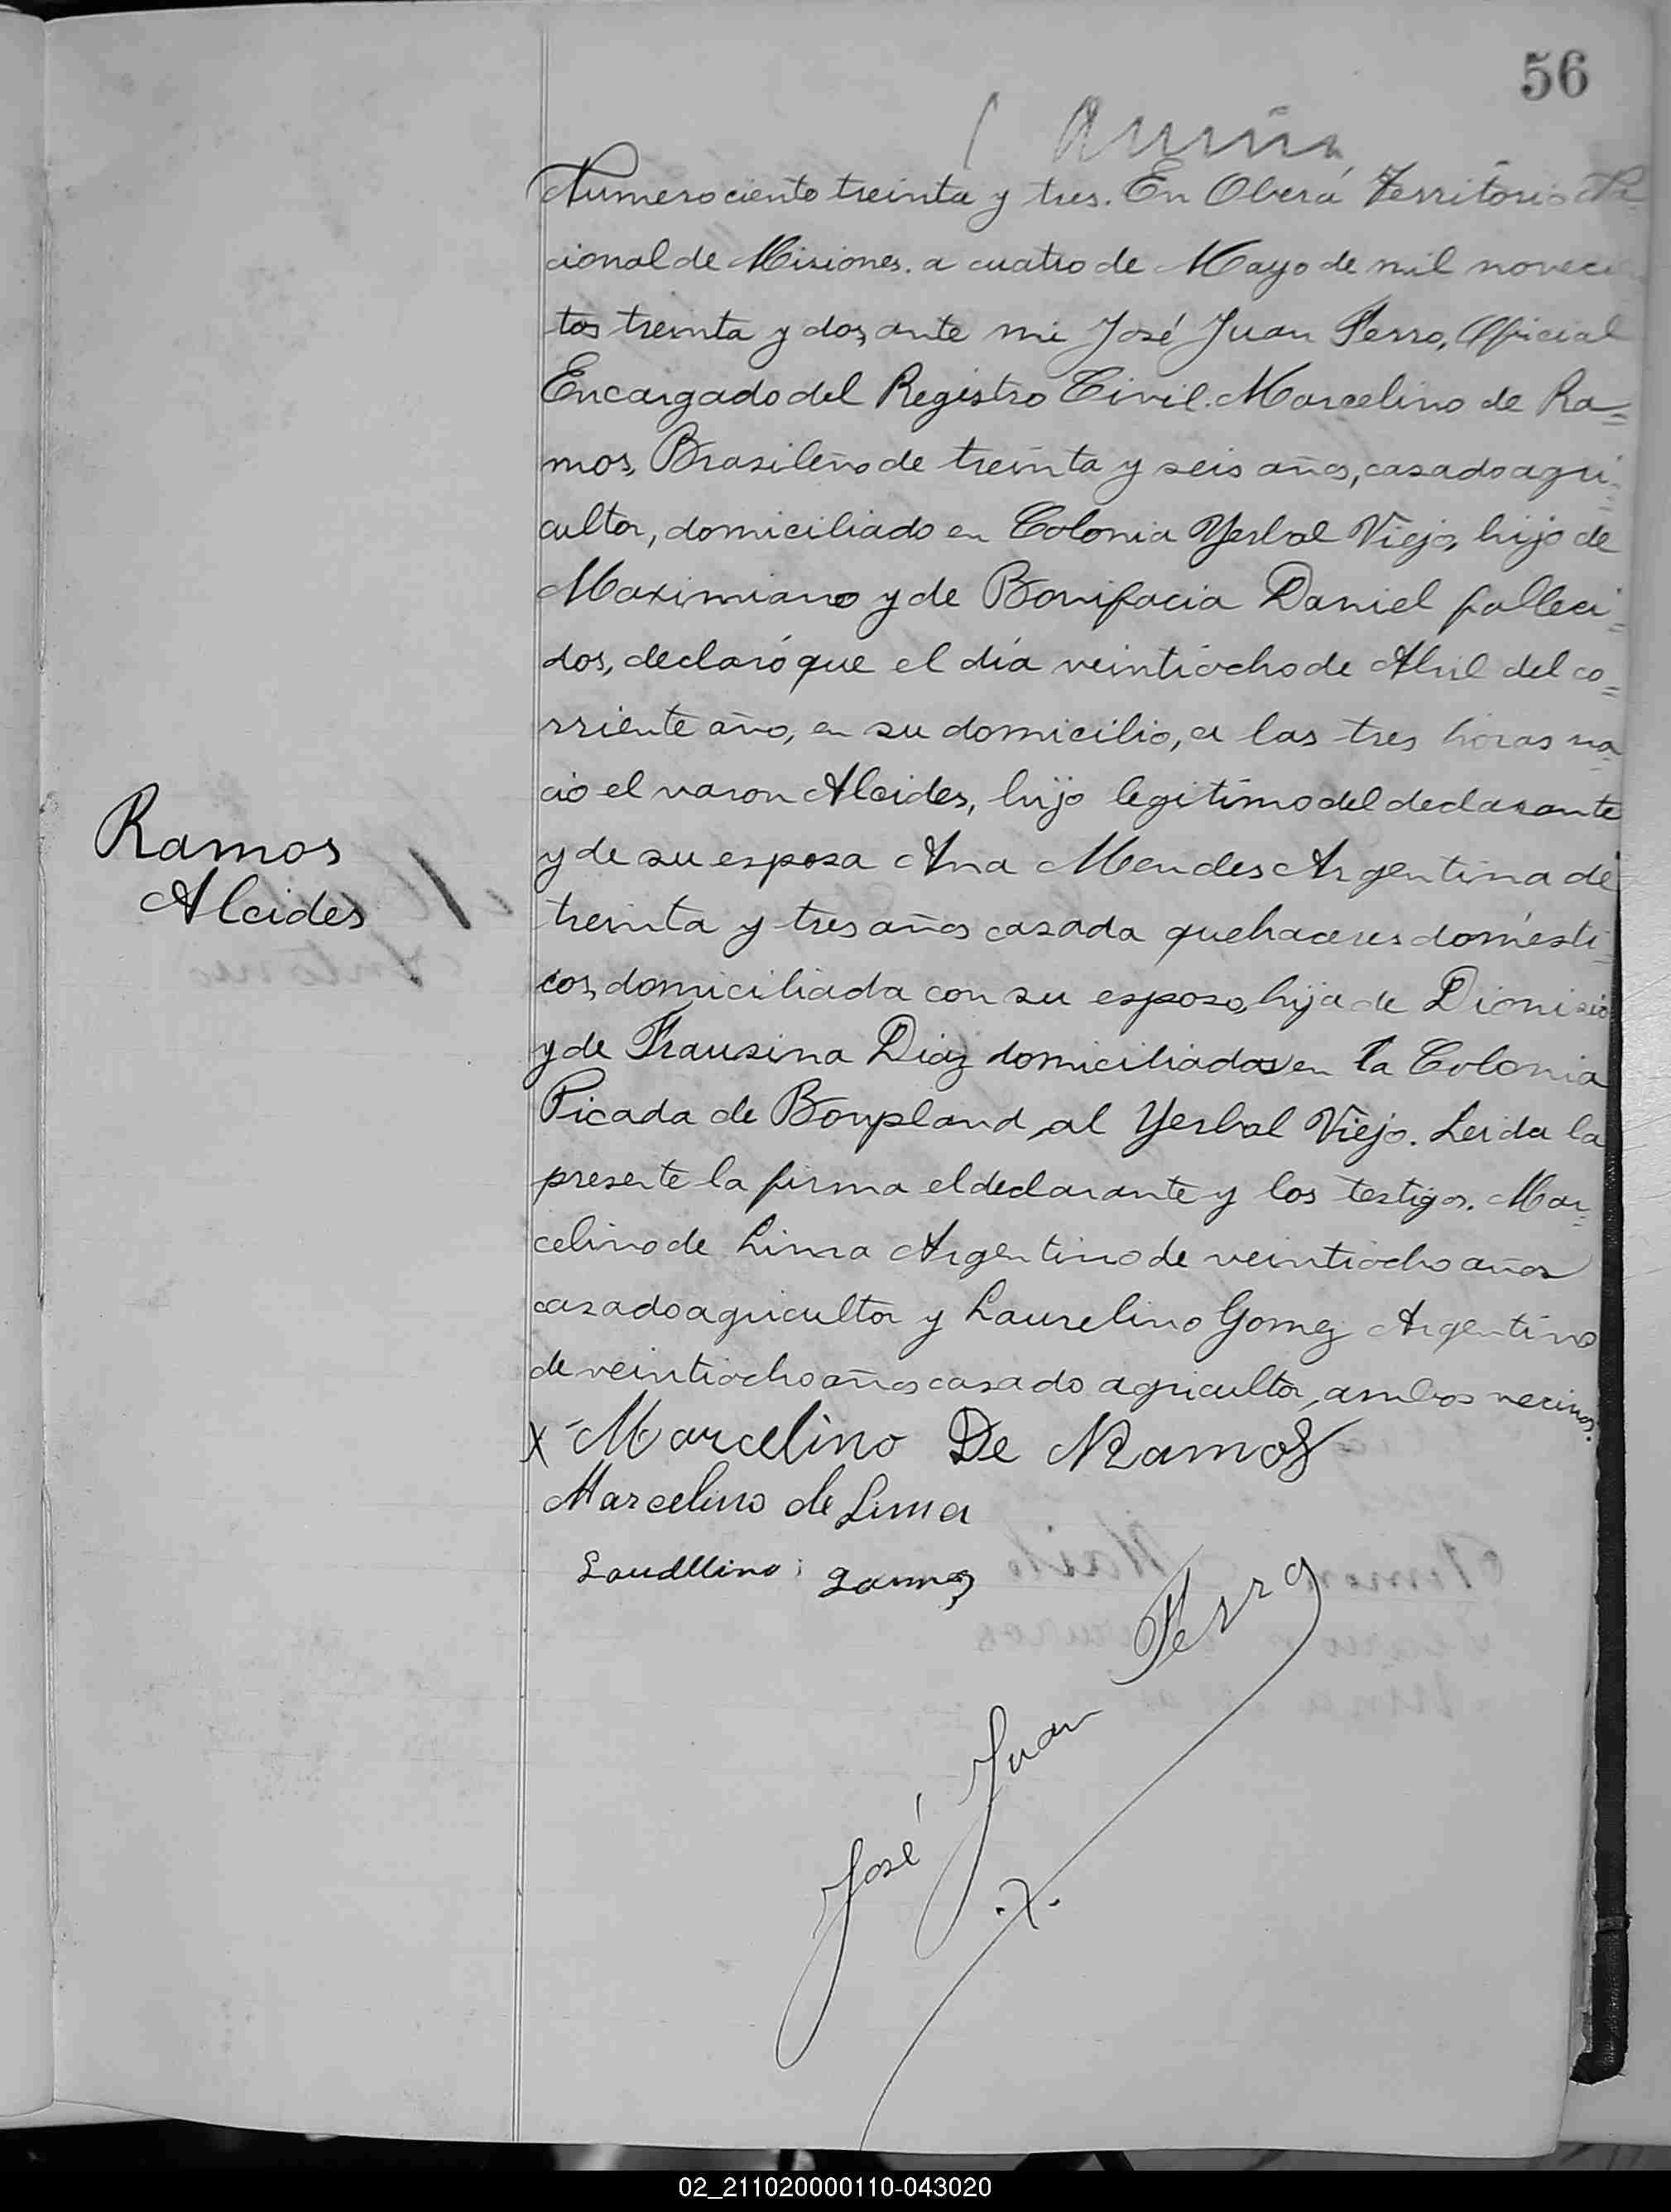 56
Numero ciento treinta y tres. En Oberá Territorio Na=
cional de Misiones. a cuatro de Mayo de mil novecien
tos treinta y dos, ante mi José Juan Ferro, Oficial
Encargado del Registro Civil. Marcelino de Ra=
mos, Brasileño de treinta y seis años, casado agri=
cultor, domiciliado en Colonia Yerbal Viejo, hijo de
Maximiano y de Bonifacia Daniel falleci=
dos, declaró que el día veintiocho de Abril del co=
rriente año, en su domicilio, a las tres horas na=
ció el varon Alcides, hijo legitimo del declarante
Ramos
Alcides
y de su esposa Ana Mendes Argentina de
treinta y tres años casada quehaceres domésti=
cos, domiciliada con su esposo, hija de Dionisio
y de Frausina Diaz domiciliados en la Colonia
Picada de Bonpland al Yerbal Viejo. Leida la
presente la firma el declarante y los testigos. Mar=
celino de Lima Argentino de veintiocho años
casado agricultor y Laurelino Gomez Argentino
de veintiocho años casado agricultor, ambos vecinos.
X Marcelino De Ramos
Marcelino de Lima
José Juan Ferro
02_211020000110-043020